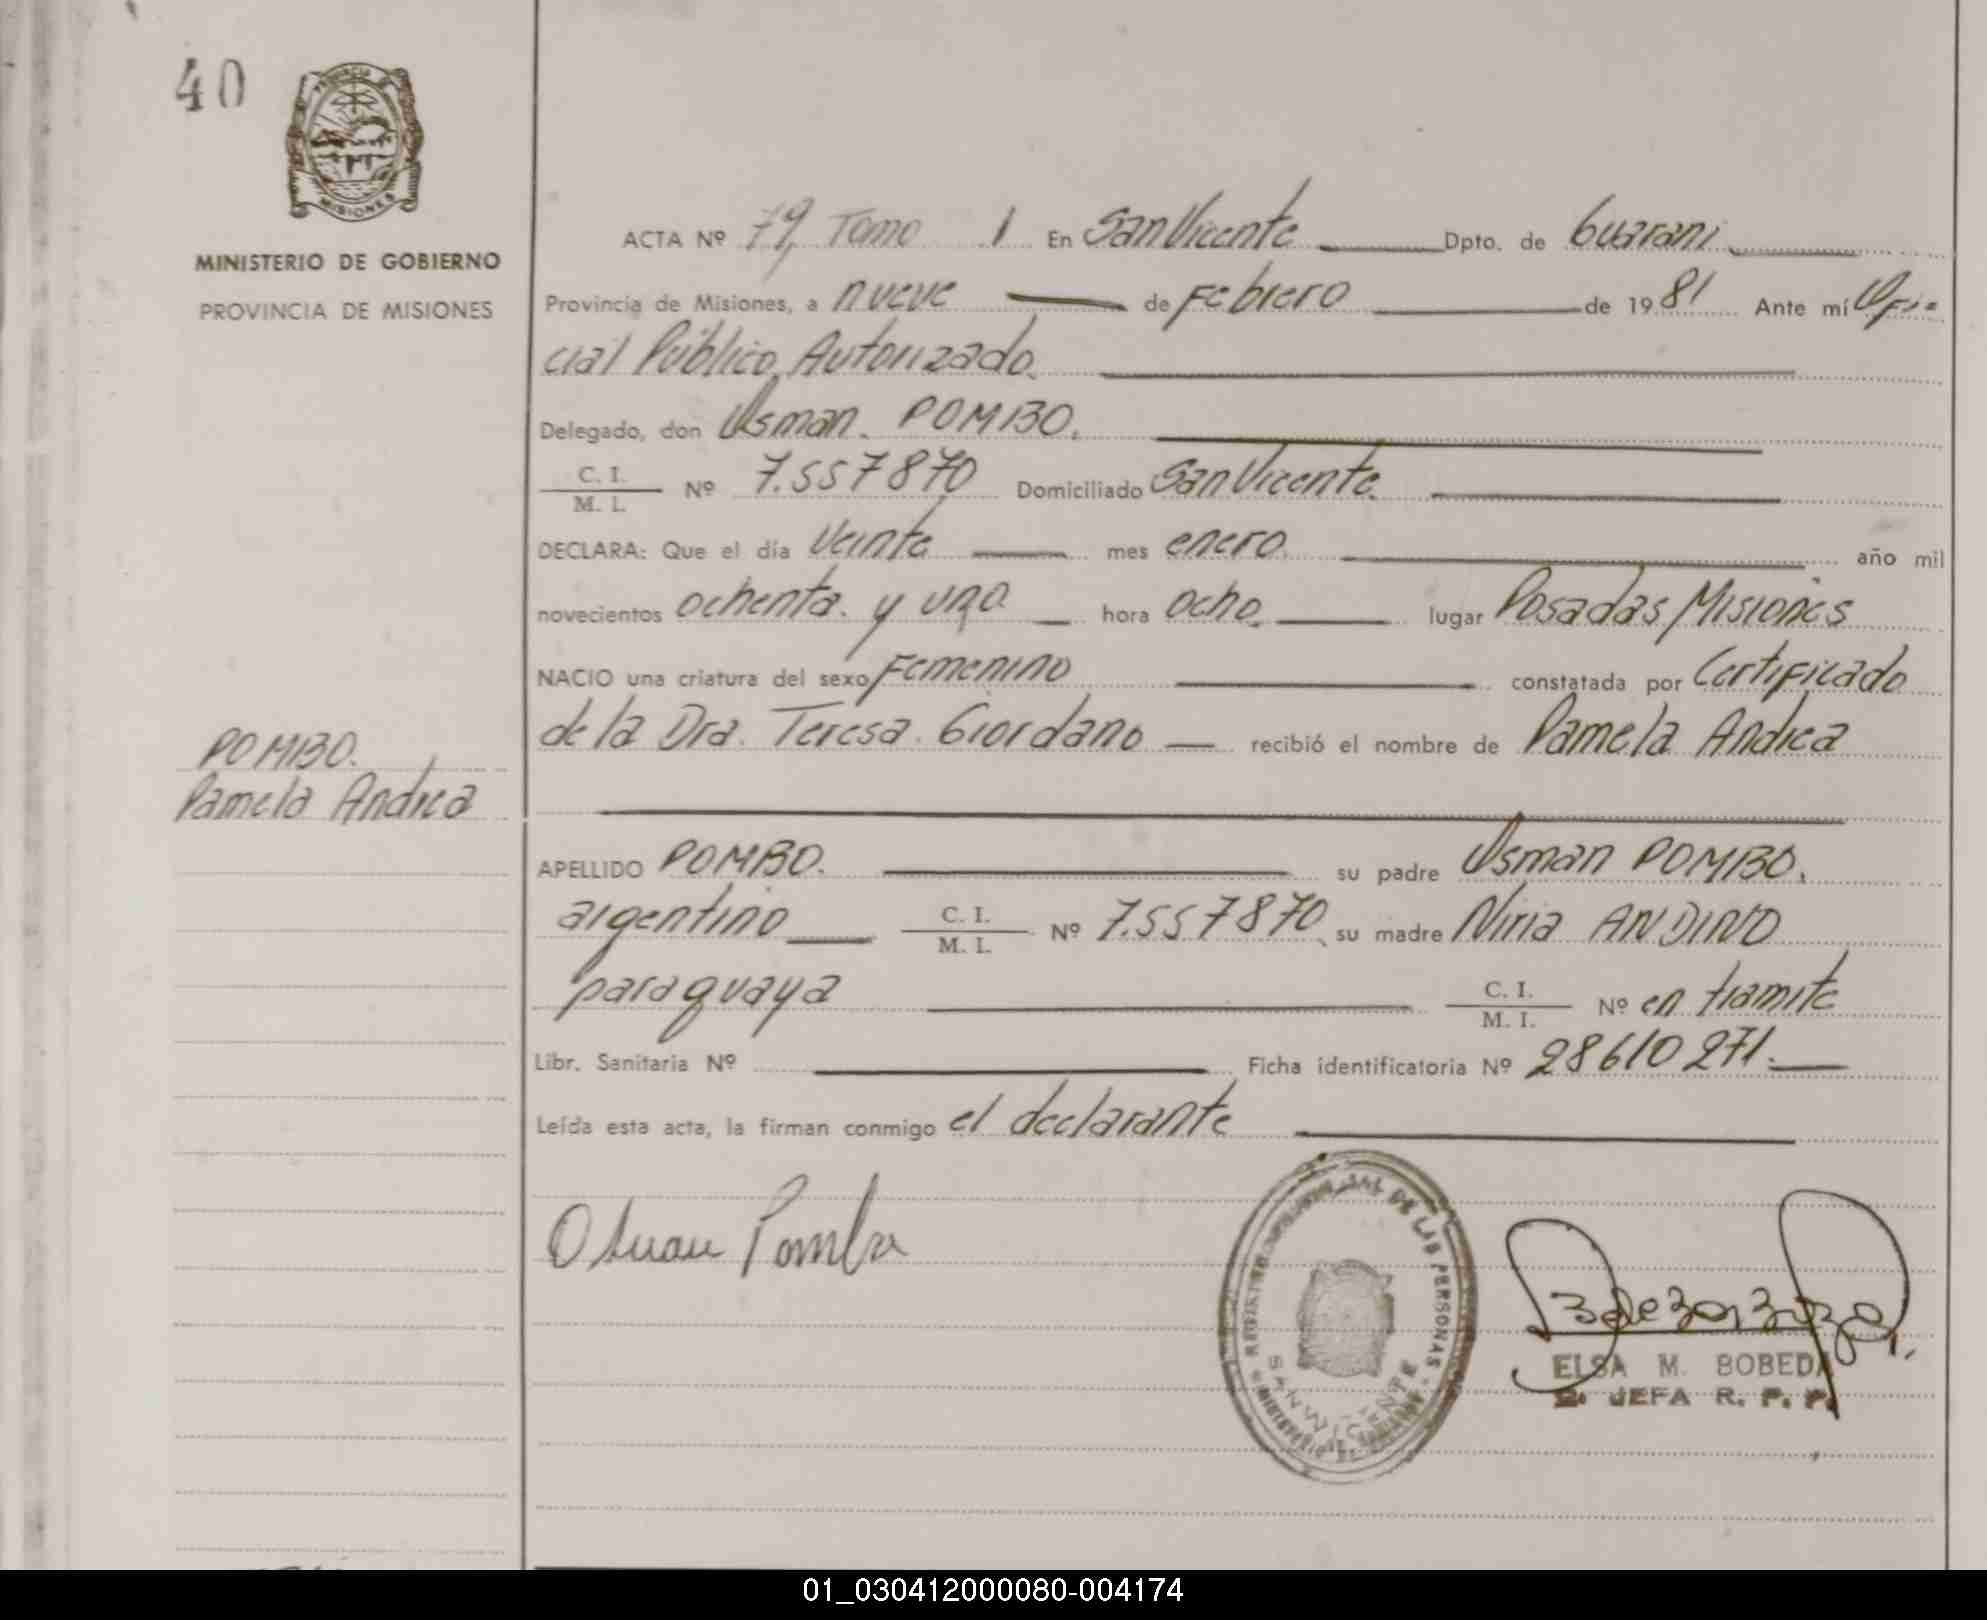 40
PROVINCIA DE
MISIONES
MINISTERIO DE GOBIERNO
PROVINCIA DE MISIONES
ACTA Nº 79, Tomo 1 En San Vicente Dpto. de Guarani
Provincia de Misiones, a nueve de Febrero de 1981 Ante mí Ofi-
cial Público Autorizado.
Delegado, don Usman. POMBO.
C. I.
M. I. Nº 7.557870 Domiciliado San Vicente.
DECLARA: Que el día Veinte mes enero. año mil
novecientos ochenta. y uno hora ocho. lugar Posadas Misiones
NACIO una criatura del sexo Femenino constatada por Certificado
de la Dra. Teresa. Giordano recibió el nombre de Pamela Andrea
POMBO.
Pamela Andrea
APELLIDO POMBO. su padre Usman POMBO.
argentino C. I.
M. I. Nº 7.557870 su madre Niria ANDINO
paraguaya C. I.
M. I. Nº en tramite
Libr. Sanitaria Nº Ficha identificatoria Nº 28610271.
Leída esta acta, la firman conmigo el declarante
Pombo
DE LAS PERSONAS
SAN VICENTE
ELSA M. BOBEDA
JEFA R. P. P.
01_030412000080-004174